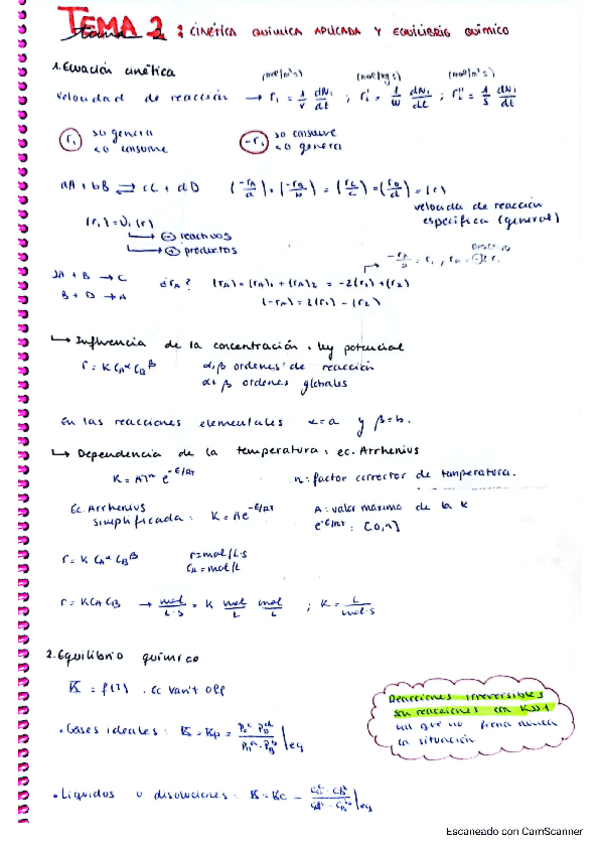 TEMA 2
tema 2 : CINÉTICA QUÍMICA APLICADA Y EQUILIBRIO QUÍMICO
1. Ecuación cinética
(mol/m³s) (mol/kg s) (mol/m²s)
Velocidad de reacción → ri = 1/V dNi/dt ; ri' = 1/W dNi/dt ; ri'' = 1/S dNi/dt
ri >0 genera <0 consume
-ri >0 consume <0 genera
aA + bB ⇌ cC + dD (-rA/a) = (-rB/b) = (rC/c) = (rD/d) = (r)
velocidad de reacción específica (general)
(ri) = νi (r)
→ ⊖ reactivos
→ ⊕ productos
-rA/2 = r1 , rA = -2r1
2A + B → C
B + D → A
¿rA? (rA) = (rA)1 + (rA)2 = -2(r1) + (r2)
(-rA) = 2(r1) - (r2)
↳ Influencia de la concentración. ley potencial
r = K CA^α CB^β α, β ordenes de reacción
α+β ordenes globales
En las reacciones elementales α=a y β=b.
↳ Dependencia de la temperatura: ec. Arrhenius
K = AT^n e^-E/RT n: factor corrector de temperatura.
Ec. Arrhenius simplificada: K = Ae^-E/RT
A: valor máximo de la K
e^-E/RT : [0,1]
r = K CA^α CB^β r=mol/L·s
CA = mol/L
r = K CA CB → mol/L·s = K mol/L mol/L ; K = L/mol·s
2. Equilibrio químico
K = f(T). ec Van't Off
Reacciones irreversibles
son reacciones con K>>1
la situación
• Gases ideales: K = Kp = PC^c · PD^d / PA^a · PB^b |eq
• Líquidos o disoluciones: K = Kc = CC^c · CD^d / CA^a · CB^b |eq
Escaneado con CamScanner